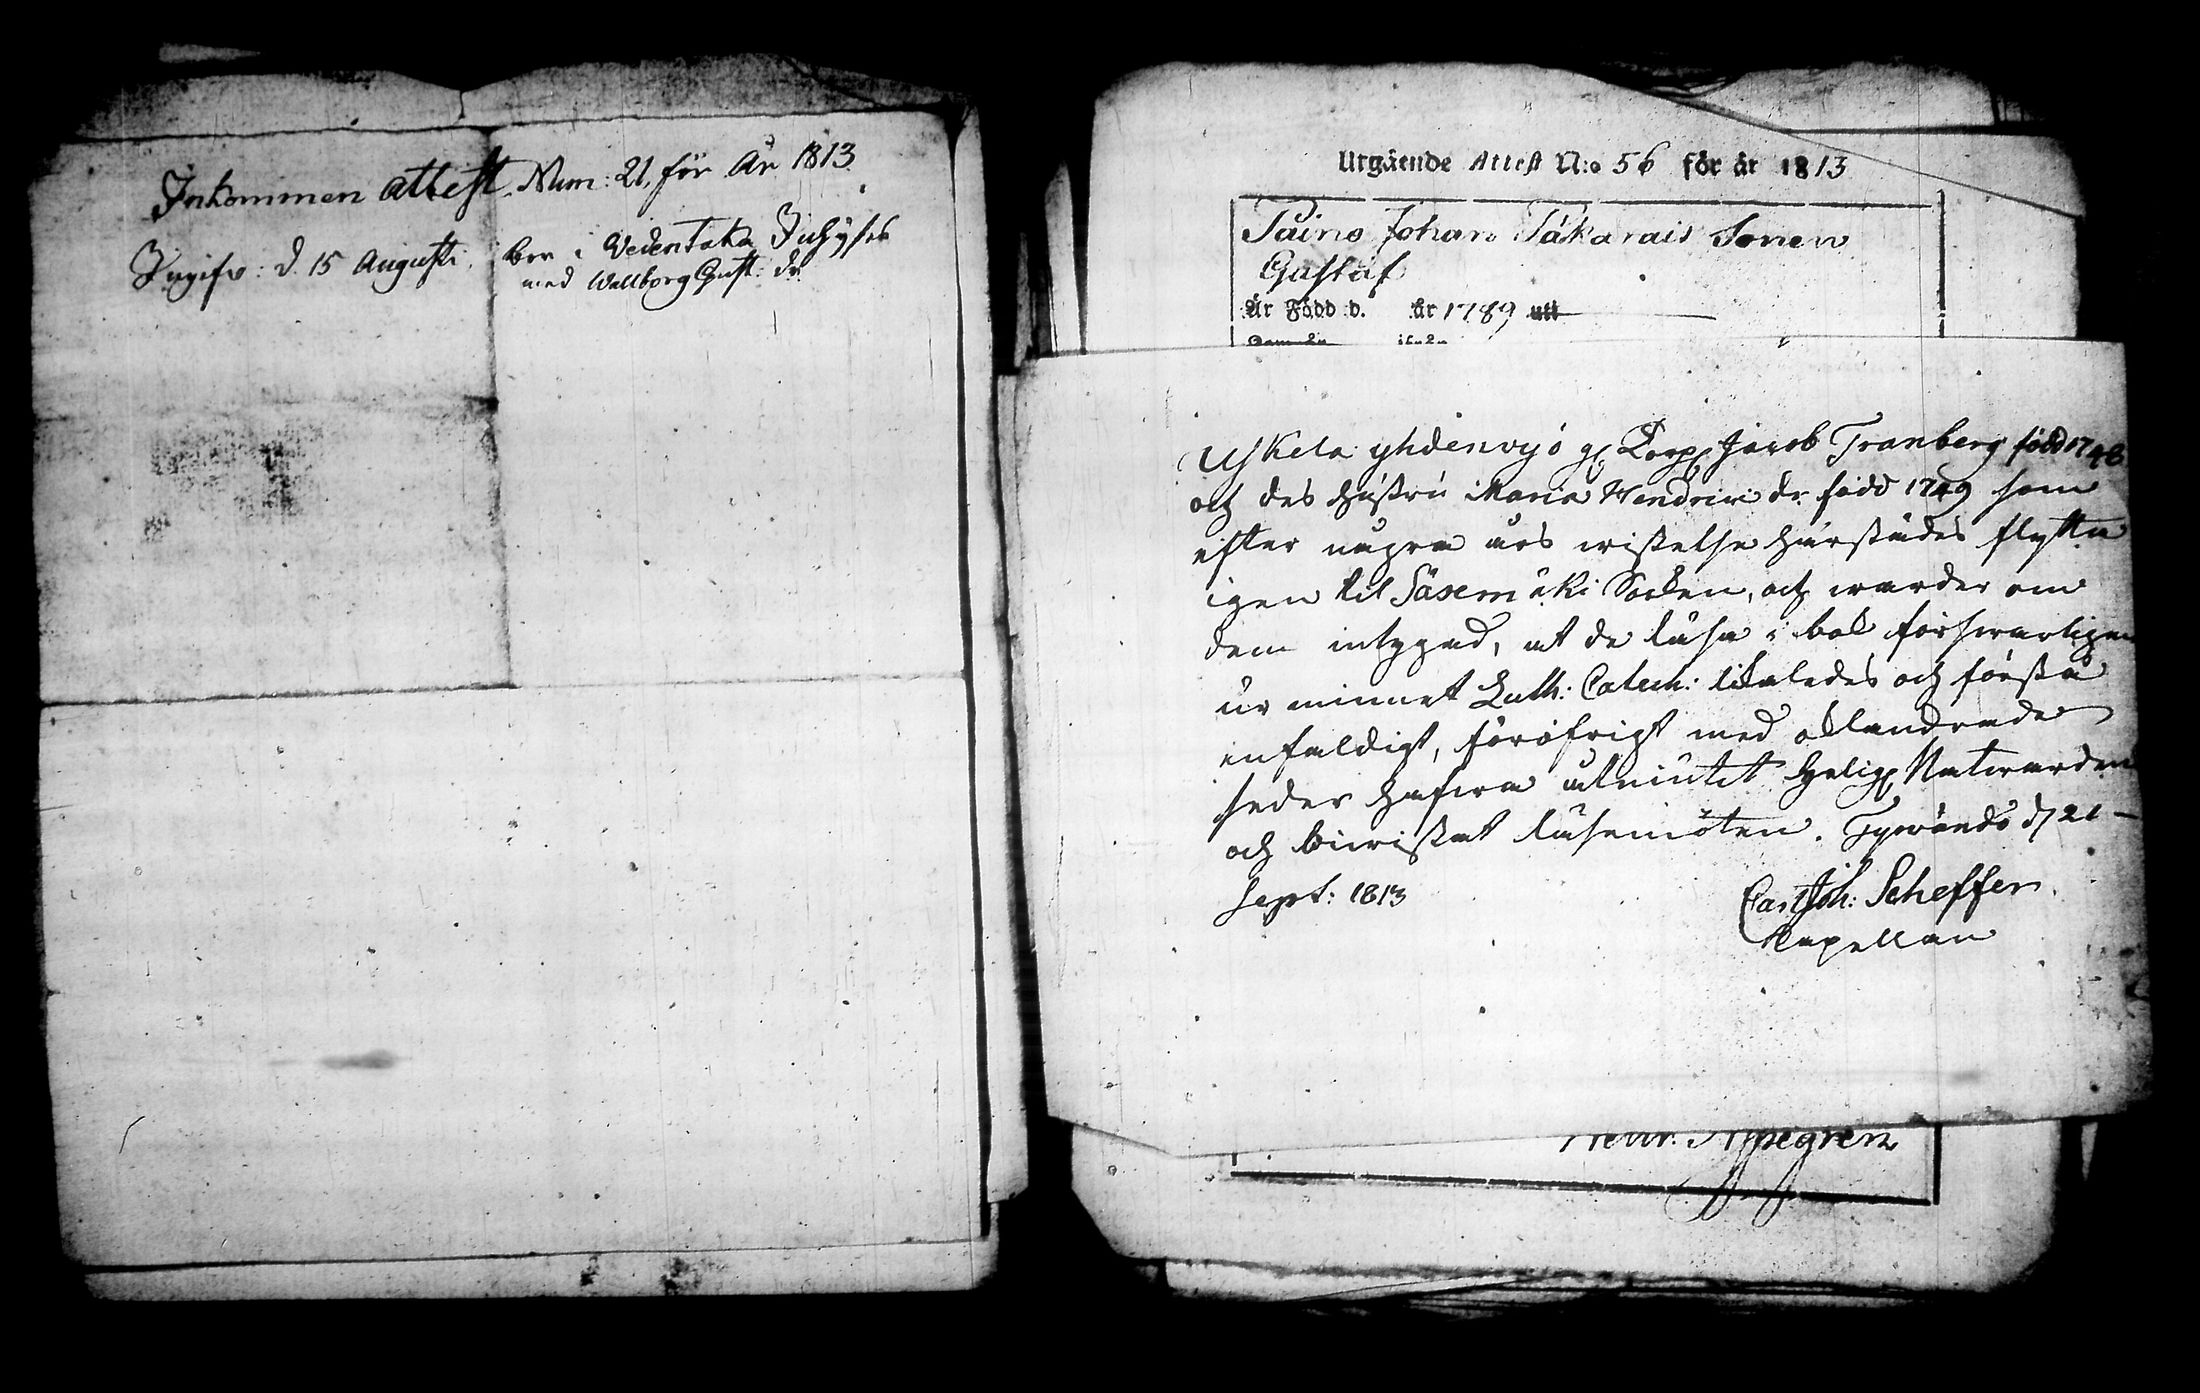 Inkommen attest Num: 21, för År 1813
Ingifv: d. 15 Augusti.
bor i Vedentaka Inhyses
med Wallborg Gust: dr
Utgående Attest N:o 56 för år 1813
Taino Johan Täkarais Sonen
Gustaf
Är Född d. år 1789 utt
Uskela yhdenvyö Korp Jacob Tranberg född 1748
och des hustru Maria Hendrix dr född 1749 som
efter några års wistelse härstädes flytta
igen till Säxemäki Socken, och warder om
dem intygad, at de läsa i bok försvarligen
ur minnet Luth: Catech: likaledes och förstå
enfaldigt, föröfrigt med oklandrade
seder hafwa utniutit Helig Natwarden
och biwistat läsemöten. Tyrwändö d 21
Sept: 1813
Carl Joh: Scheffer.
Kapellan
Nypegren